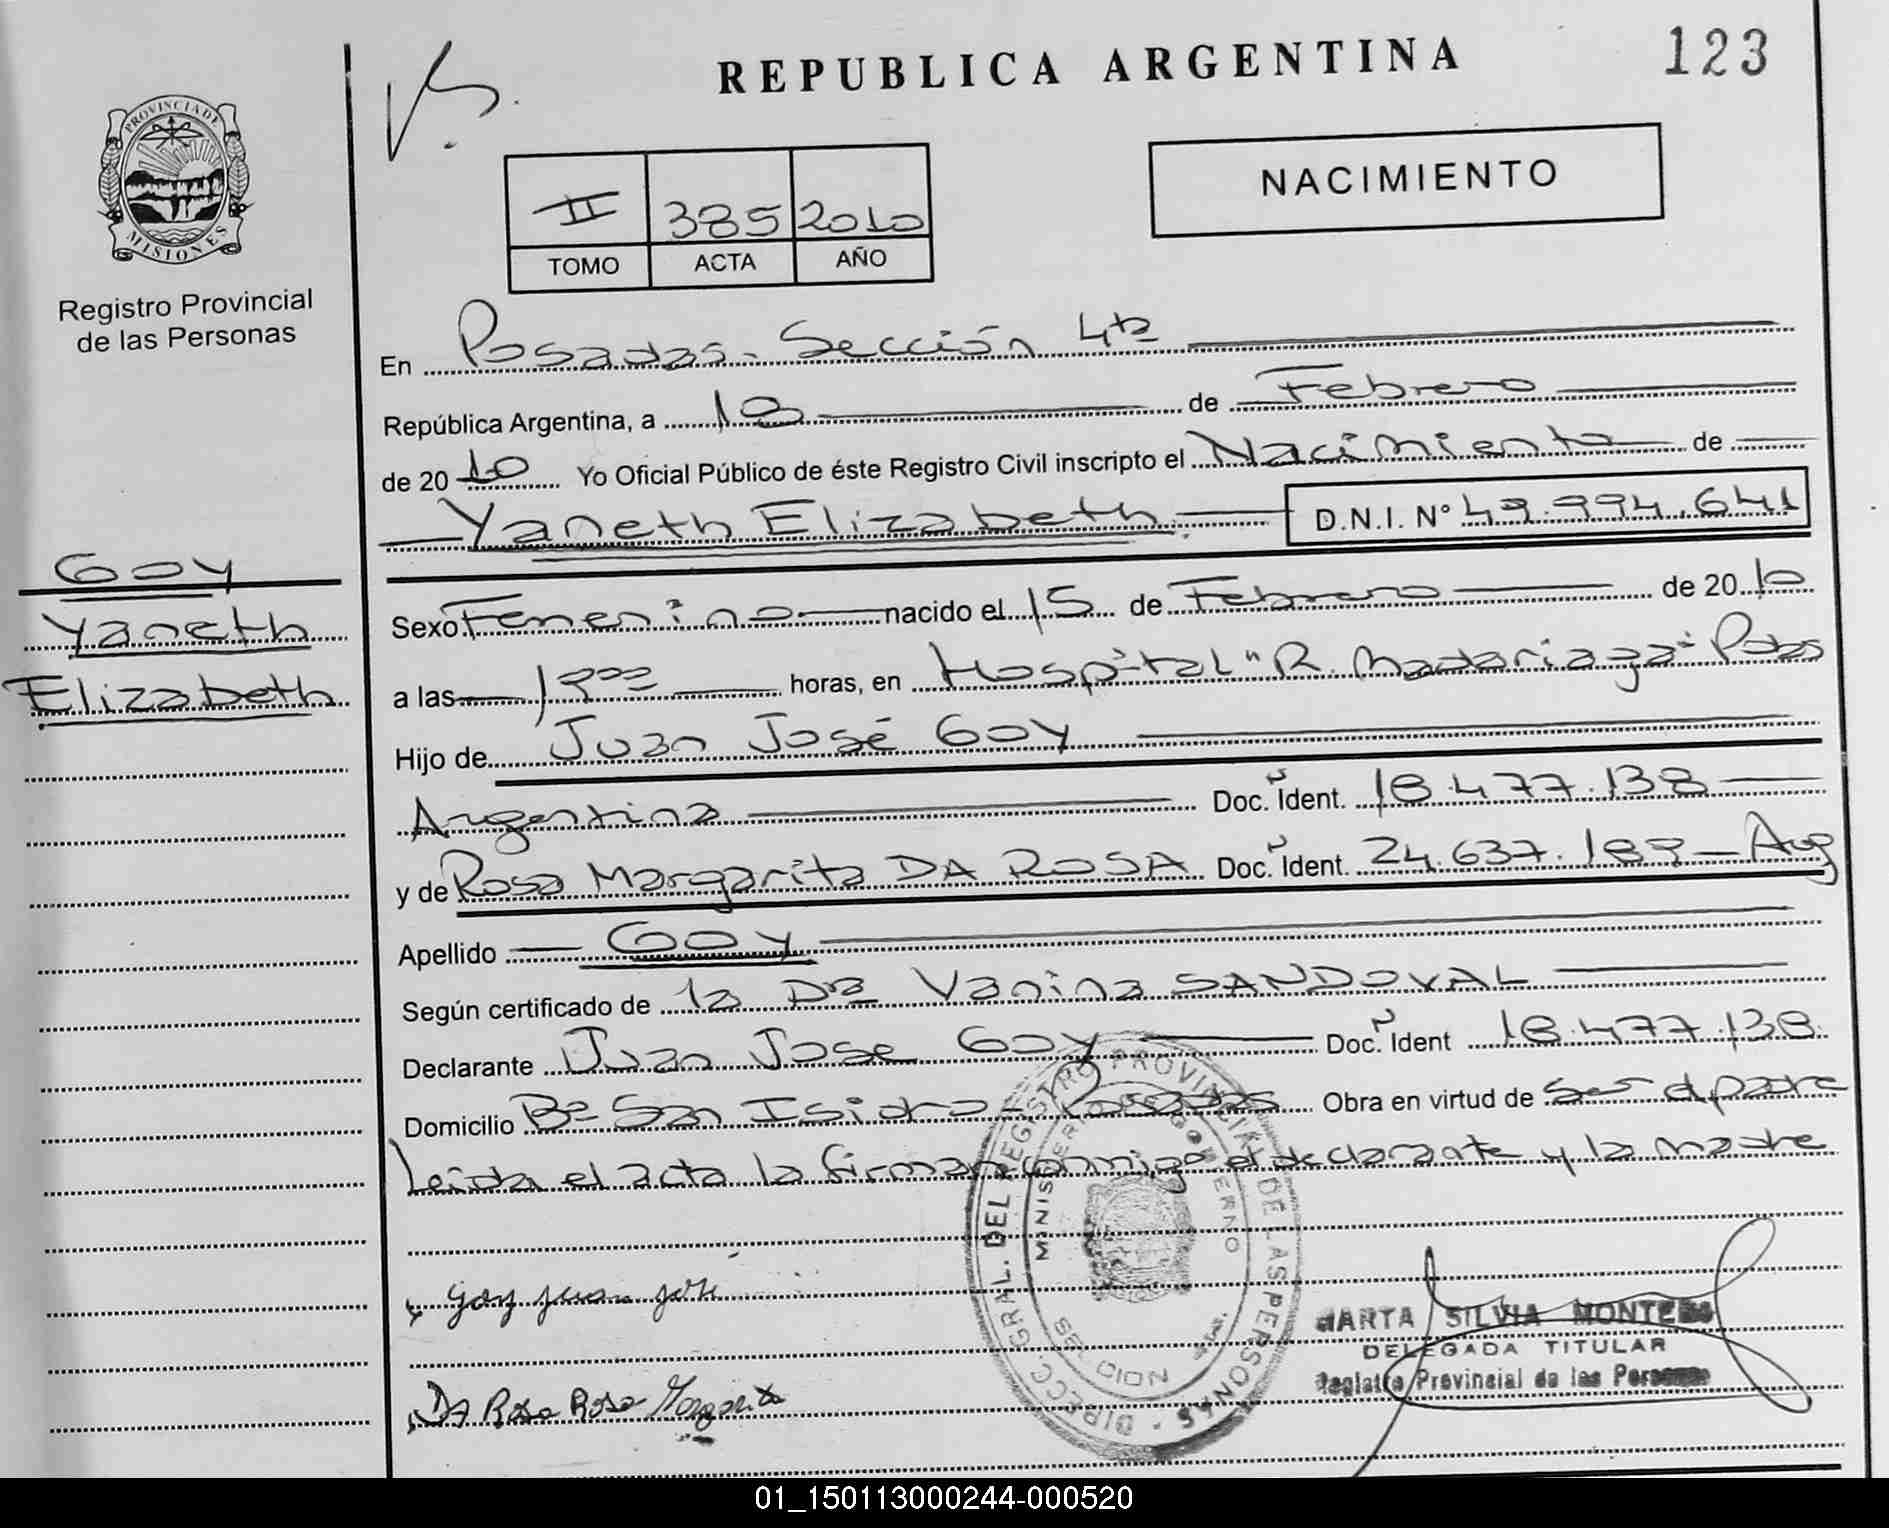 REPUBLICA ARGENTINA
123
PROVINCIA DE
MISIONES
Registro Provincial
de las Personas
NACIMIENTO
II 385 2010
TOMO ACTA AÑO
En Posadas - Sección 4ta
República Argentina, a 18 de Febrero
de 2010 Yo Oficial Público de éste Registro Civil inscripto el Nacimiento de
Yaneth Elizabeth D.N.I. Nº 49.994.641
GOY
Yaneth
Elizabeth
Sexo Femenino nacido el 15 de Febrero de 2010
a las horas, en Hospital "R. Madariaga" Pdas
Hijo de Juan José GOY
Argentina Doc. Ident. 18.477.138
y de Rosa Margarita DA ROSA Doc. Ident. 24.637.189 - Arg
Apellido GOY
Según certificado de la Dra Vanina SANDOVAL
Declarante Juan Jose GOY Doc. Ident 18.477.138.
Domicilio Bº San Isidro - Posadas Obra en virtud de ser el padre
Leida el acta la firman conmigo el declarante y la madre
Goy Juan José
DA Rosa Rosa Margarita
DIRECC. GRAL. DEL REGISTRO PROVINCIAL DE LAS PERSONAS
MINISTERIO GOBIERNO
MARTA SILVIA MONTERO
DELEGADA TITULAR
Registro Provincial de las Personas
01_150113000244-000520